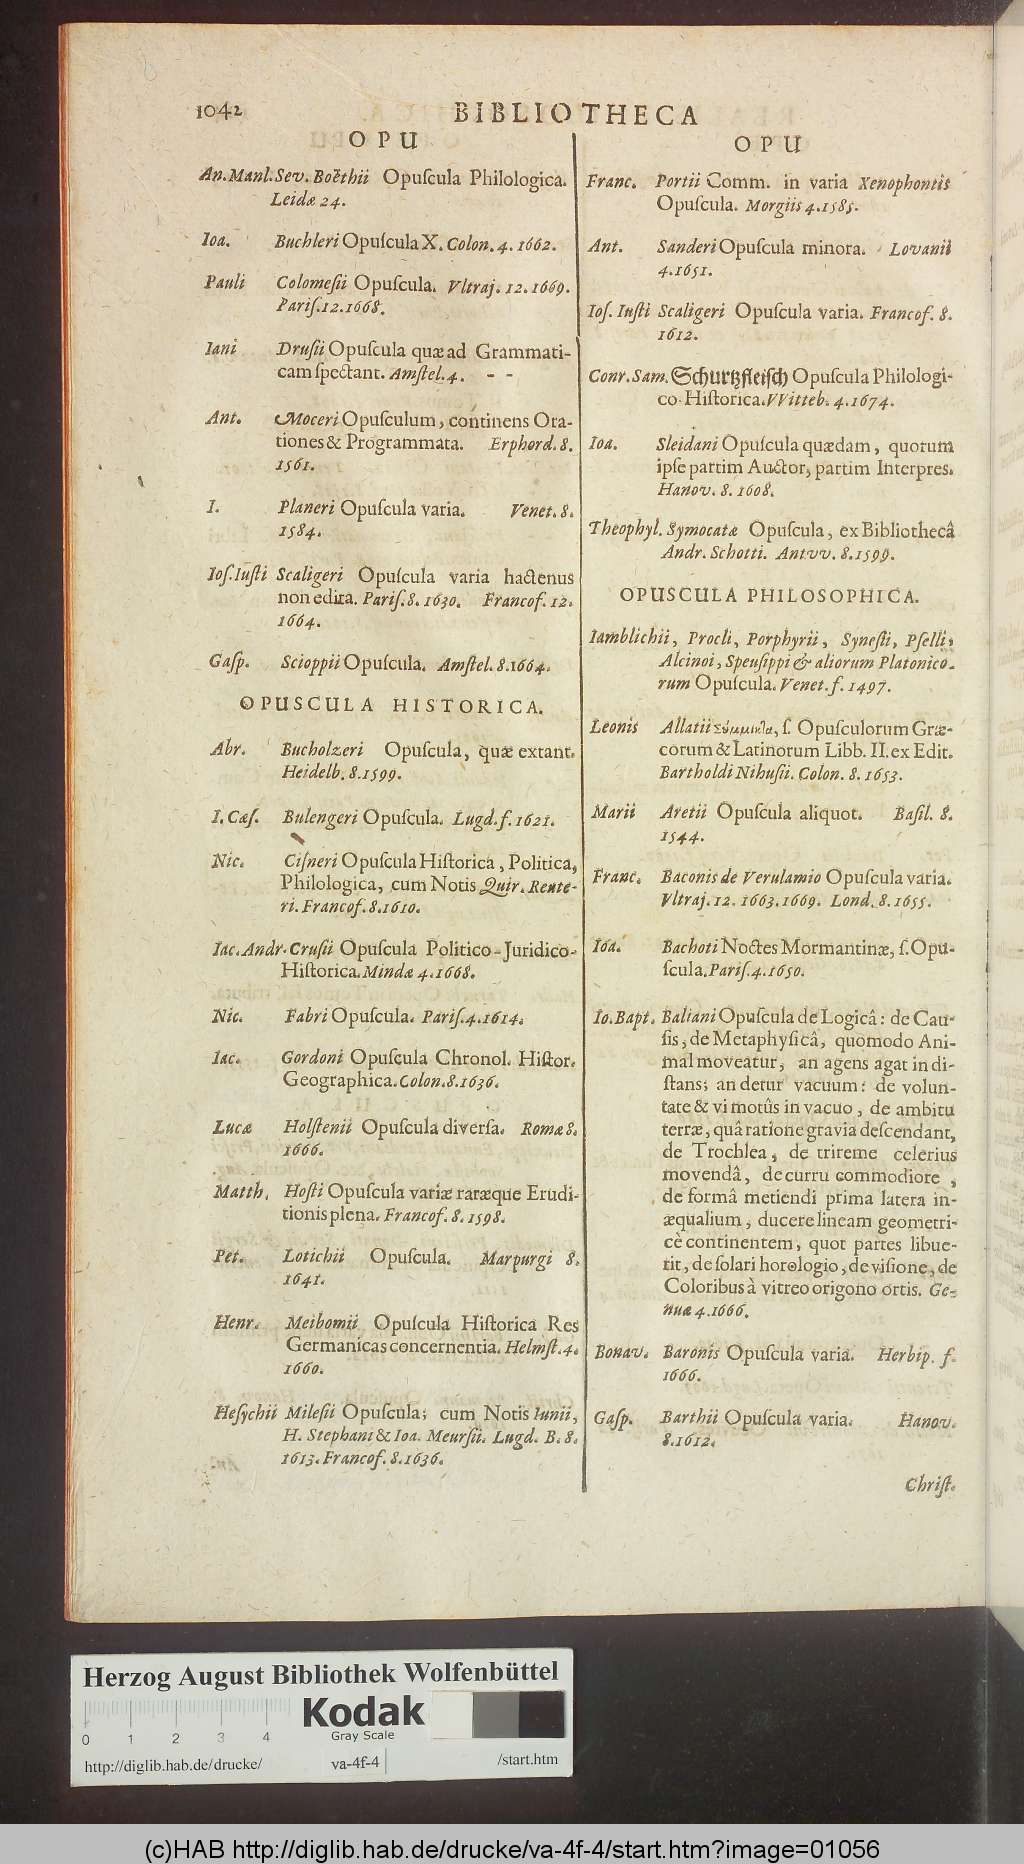 1042
BIBLIOTHECA
OPU
An. Manl. Sev. Boëthii Opuſcula Philologica.
Leidæ 24.
Ioa. Buchleri Opuſcula X. Colon. 4. 1662.
Pauli Colomeſii Opuſcula. Vltraj. 12. 1669.
Pariſ. 12. 1668.
Iani Druſii Opuſcula quæ ad Grammati-
cam ſpectant. Amſtel. 4. - -
Ant. Moceri Opuſculum, continens Ora-
tiones & Programmata. Erphord. 8.
1561.
I. Planeri Opuſcula varia. Venet. 8.
1584.
Ioſ. Iuſti Scaligeri Opuſcula varia hactenus
non edita. Pariſ. 8. 1630. Francof. 12.
1664.
Gaſp. Scioppii Opuſcula. Amſtel. 8. 1664.
OPUSCULA HISTORICA.
Abr. Bucholzeri Opuſcula, quæ extant.
Heidelb. 8. 1599.
I. Cæſ. Bulengeri Opuſcula. Lugd. f. 1621.
Nic. Ciſneri Opuſcula Hiſtorica, Politica,
Philologica, cum Notis Quir. Reute-
ri. Francof. 8. 1610.
Iac. Andr. Cruſii Opuſcula Politico-Juridico-
Hiſtorica. Mindæ 4. 1668.
Nic. Fabri Opuſcula. Pariſ. 4. 1614.
Iac. Gordoni Opuſcula Chronol. Hiſtor.
Geographica. Colon. 8. 1636.
Lucæ Holſtenii Opuſcula diverſa. Romæ 8.
1666.
Matth. Hoſti Opuſcula variæ raræque Erudi-
tionis plena. Francof. 8. 1598.
Pet. Lotichii Opuſcula. Marpurgi 8.
1641.
Henr. Meibomii Opuſcula Hiſtorica Res
Germanicas concernentia. Helmſt. 4.
1660.
Heſychii Mileſii Opuſcula; cum Notis Iunii,
H. Stephani & Ioa. Meurſii. Lugd. B. 8.
1613. Francof. 8. 1636.
OPU
Franc. Portii Comm. in varia Xenophontis
Opuſcula. Morgiis 4. 1585.
Ant. Sanderi Opuſcula minora. Lovanii
4. 1651.
Ioſ. Iuſti Scaligeri Opuſcula varia. Francof. 8.
1612.
Conr. Sam. Schurtzfleiſch Opuſcula Philologi-
co-Hiſtorica. VVitteb. 4. 1674.
Ioa. Sleidani Opuſcula quædam, quorum
ipſe partim Auctor, partim Interpres.
Hanov. 8. 1608.
Theophyl. Symocatæ Opuſcula, ex Bibliothecâ
Andr. Schotti. Antvv. 8. 1599.
OPUSCULA PHILOSOPHICA.
Iamblichii, Procli, Porphyrii, Syneſii, Pſelli,
Alcinoi, Speuſippi & aliorum Platonico-
rum Opuſcula. Venet. f. 1497.
Leonis Allatii Σύμμικτα, ſ. Opuſculorum Græ-
corum & Latinorum Libb. II. ex Edit.
Bartholdi Nihuſii. Colon. 8. 1653.
Marii Aretii Opuſcula aliquot. Baſil. 8.
1544.
Franc. Baconis de Verulamio Opuſcula varia.
Vltraj. 12. 1663. 1669. Lond. 8. 1655.
Ioa. Bachoti Noctes Mormantinæ, ſ. Opu-
ſcula. Pariſ. 4. 1650.
Io. Bapt. Baliani Opuſcula de Logicâ: de Cau-
ſis, de Metaphyſicâ, quomodo Ani-
mal moveatur, an agens agat in di-
ſtans; an detur vacuum: de volun-
tate & vi motûs in vacuo, de ambitu
terræ, quâ ratione gravia deſcendant,
de Trochlea, de trireme celerius
movendâ, de curru commodiore,
de formâ metiendi prima latera in-
æqualium, ducere lineam geometri-
cè continentem, quot partes libue-
rit, de ſolari horologio, de viſione, de
Coloribus à vitreo origono ortis. Ge-
nuæ 4. 1666.
Bonav. Baronis Opuſcula varia. Herbip. f.
1666.
Gaſp. Barthii Opuſcula varia. Hanov.
8. 1612.
Chriſt.
Herzog August Bibliothek Wolfenbüttel
Kodak
Gray Scale
0 1 2 3 4
http://diglib.hab.de/drucke/ va-4f-4 /start.htm
(c)HAB http://diglib.hab.de/drucke/va-4f-4/start.htm?image=01056